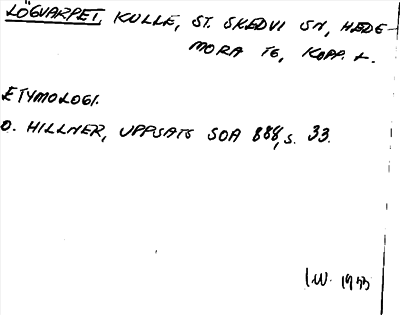 LÖGVARPET, KULLE, ST. SKEDVI SN, HEDE-
MORA TG, KOPP. L.
ETYMOLOGI.
O. HILLNER, UPPSATS SOA 888, S. 33.
I.W. 1953